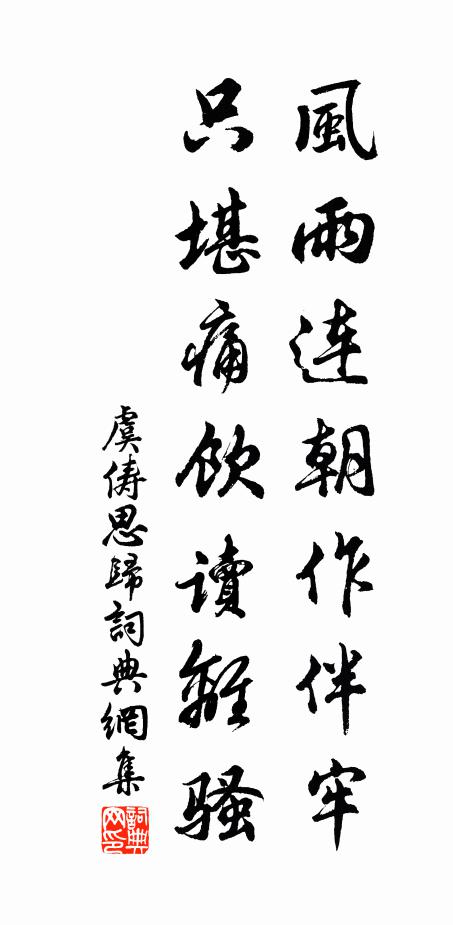 風雨連朝作伴牢
只堪痛飲讀離騷
虞儔思歸詞典網集
詞典網印